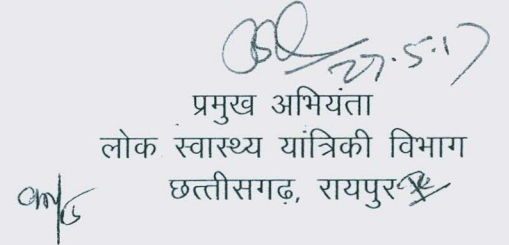 27.5.17
प्रमुख अभियंता
लोक स्वास्थ्य यांत्रिकी विभाग
छत्तीसगढ़, रायपुर